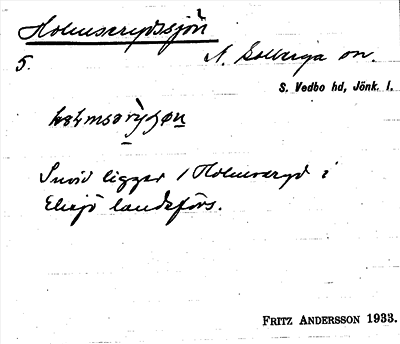 Holmserydssjön
5. N. Solberga sn.
S. Vedbo hd, Jönk. l.
Invid ligger 1 Holmseryd i
Eksjö landsförs.
FRITZ ANDERSSON 1933.